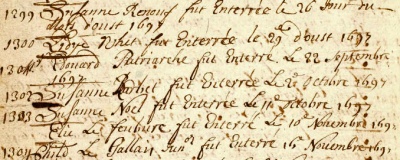 1299 Susanne Renouf fut Enterrée le 26 Jour
d'oust 1697
1300 Lidye Whit fut Enterrée le 29 d'oust 1697
Edouard Patriarche fut Enterré le 22 Septembre
1697
1302 Susanne fut Enterrée le 2 Octobre 1697
1303 Susanne Noel fut Enterrée le 11 Octobre 1697
Elie Le Feubure fut Enterré le 10 Novembre 1697
Phil. Le Gallais Junr fut Enterré le 16 Novembre 1697